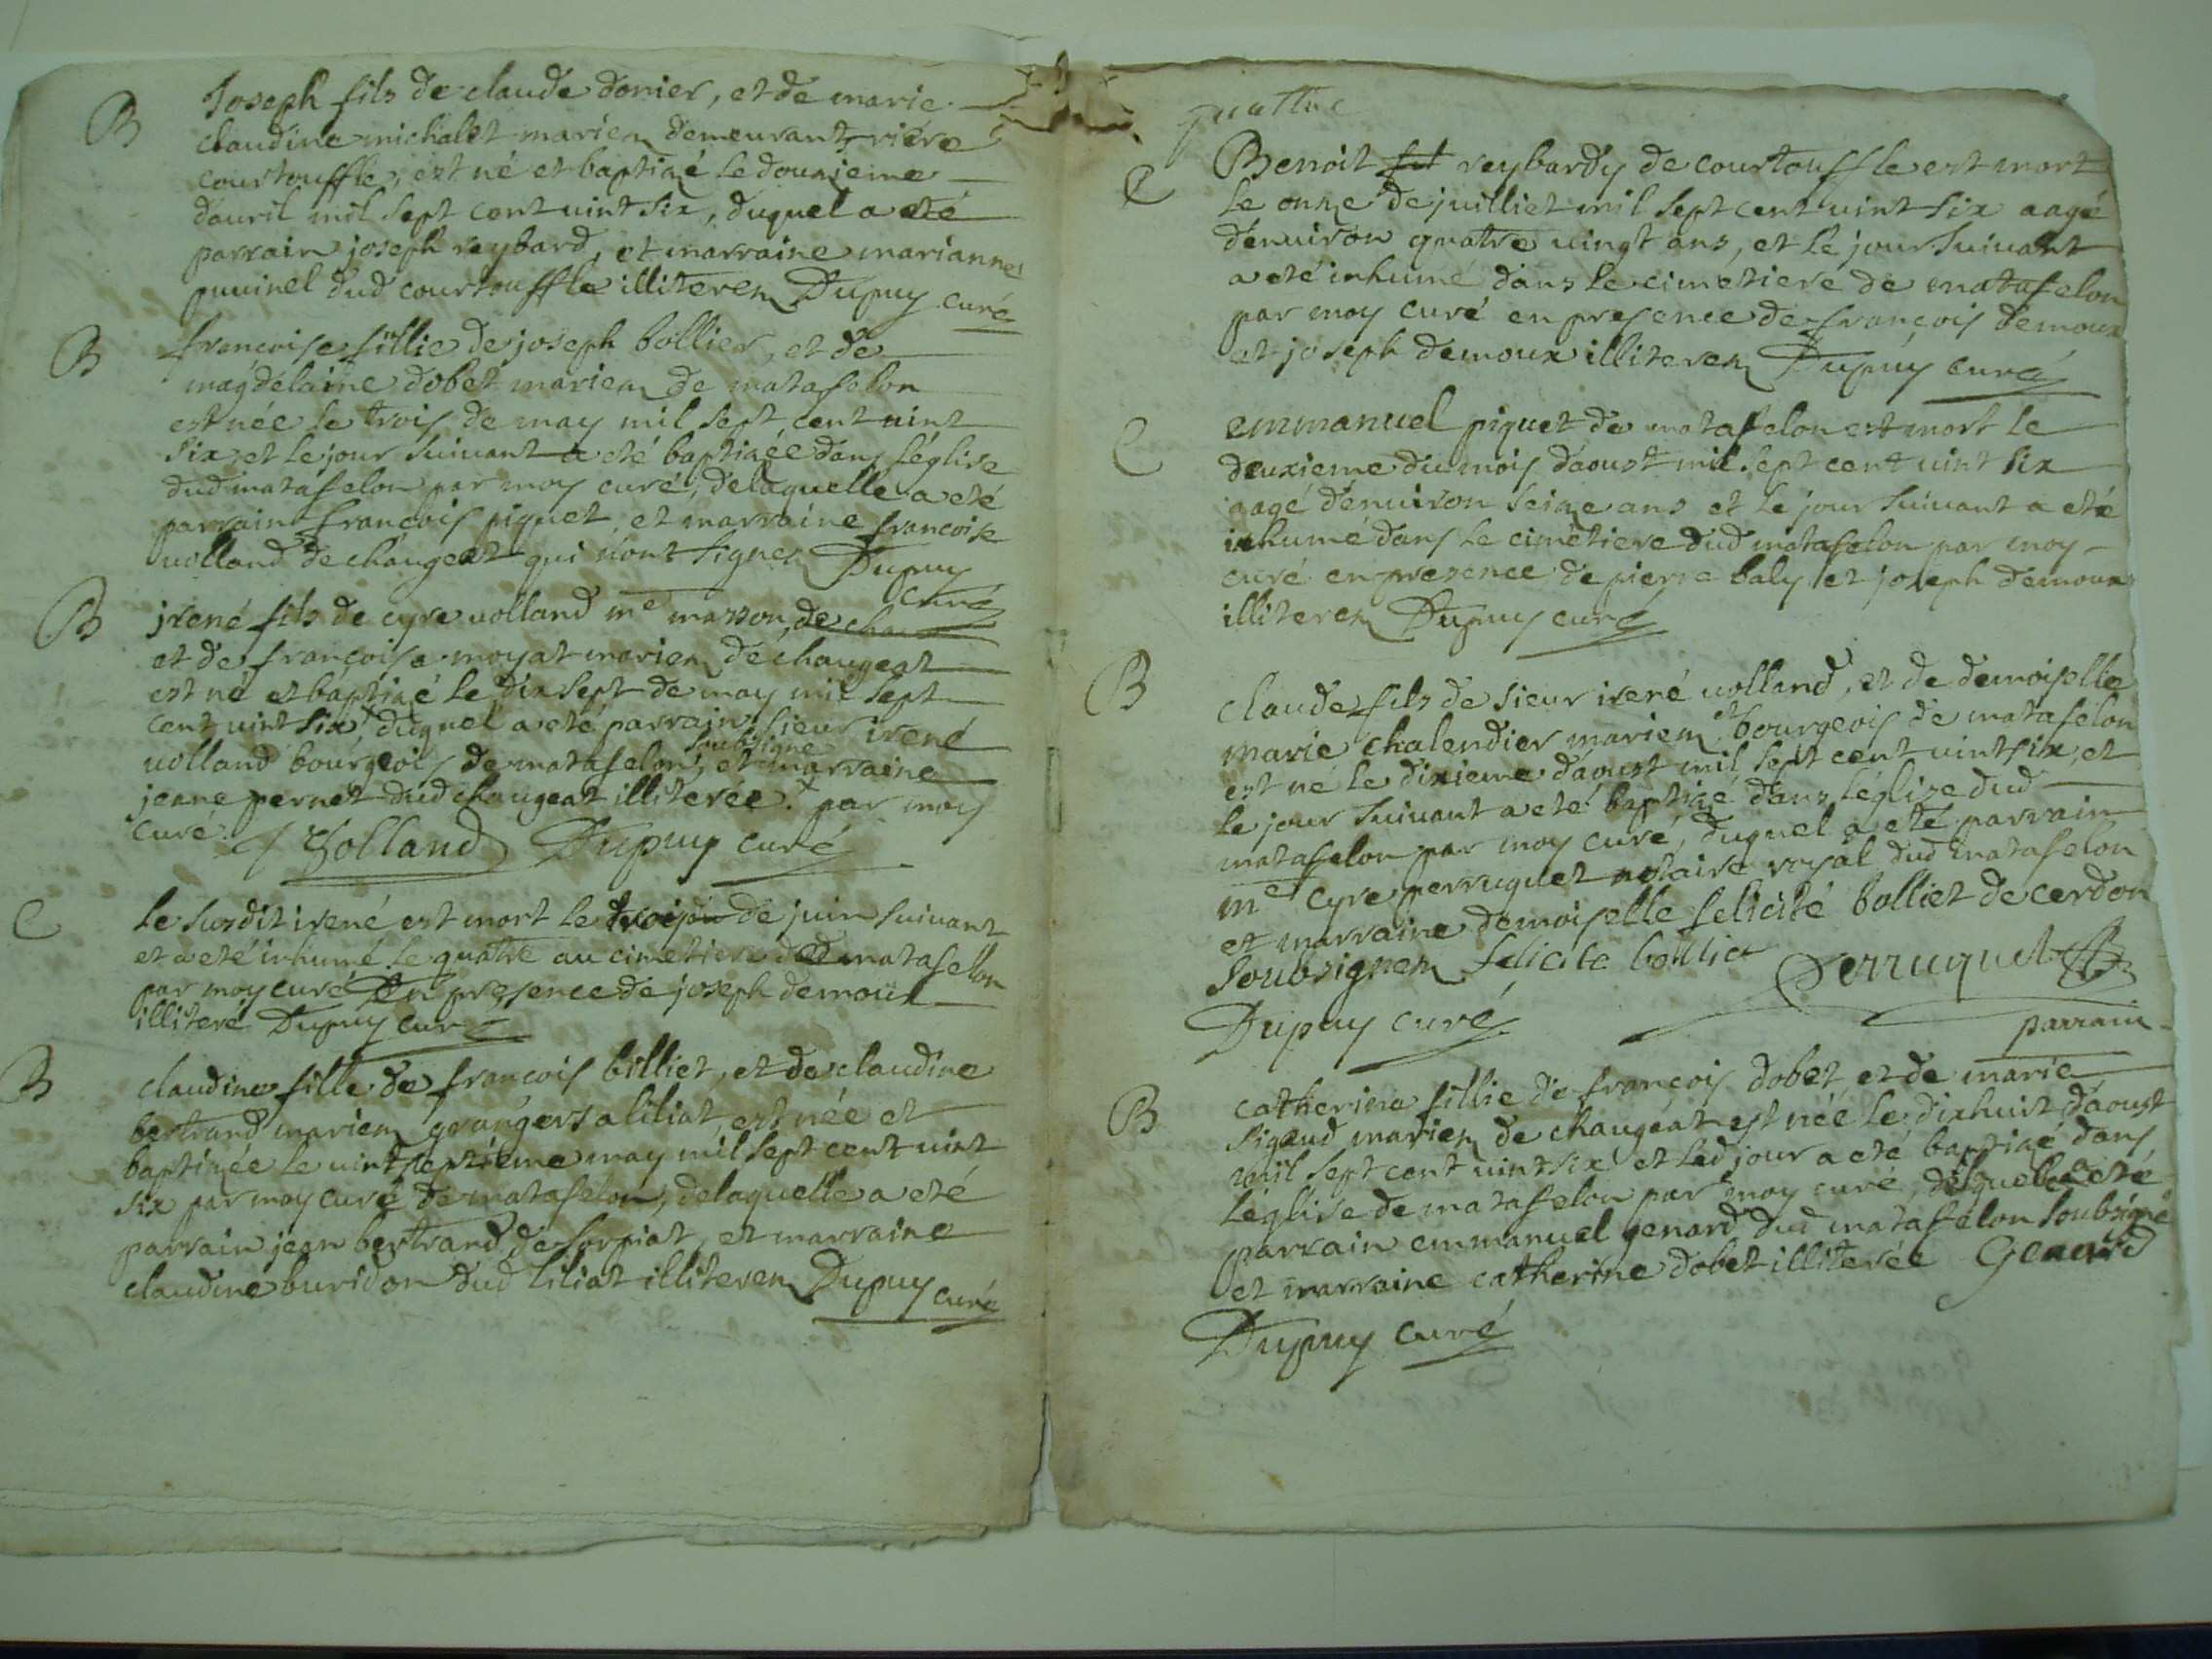 B
Joseph fils de claude donier, et de marie
claudine michalet mariez demeurant riere
courtouffle, est né et baptizé le douzieme
d'auril mil sept cent uint six, duquel a eté
parrain joseph reybard, et marraine marianne
puuinel dud courtouffle illiterez Dupuy curé
B
francoise fillie de joseph bollier, et de
magdelaine dobet mariez de matafelon
est née le trois de may mil sept cent uint
six et le jour suiuant a eté baptizée dans l'églize
dud matafelon par moy curé, de laquelle a eté
parrain françois piquet, et marraine francoise
uolland de chaugeat qui n'ont signez Dupuy
curé
B
jrené fils de cyre uolland me masson, de chau
et de françoise moyat mariez de chaugeat
est né et baptizé le dix sept de may mil sept
cent uint six, duquel a eté parrain sieur irené
uolland bourgeois de matafelon, soubsigné et marraine
jeane pernet dud chaugeat illiterée. x par moy
curé. Volland Dupuy curé
C
le susdit irené est mort le trois de juin suiuant
et a eté inhumé le quatre au cimetiere dud matafelon
par moy curé En presence de joseph demoux
illiteré Dupuy curé
B
claudine fille de françois billiet, et de claudine
bertrand mariez grangers a liliat, est née et
baptizée le uint septieme may mil sept cent uint
six par moy curé de matafelon, de laquelle a eté
parrain jean bertrand de sorpiat, et marraine
claudine buridon dud liliat illiterez Dupuy curé
quattre
C
Benoit fil reybardy de courtouffle est mort
le onze de juilliet mil sept cent uint six aagé
d'enuiron quatre uingt ans, et le jour suiuant
a eté inhumé dans le cimetiere de matafelon
par moy curé en presence de françois demoux
et joseph demoux illiterez Dupuy curé
C
emmanuel piquet de matafelon est mort le
deuxieme du mois d'aoust mil sept cent uint six
aagé d'enuiron seize ans et le jour suiuant a eté
inhumé dans le cimetiere dud matafelon par moy
curé en presence de pierre baly et joseph demoux
illiterez Dupuy curé
B
Claude fils de sieur irené uolland, et de demoiselle
marie chalendier mariez et bourgeois de matafelon
est né le dixieme d'aoust mil sept cent uint six, et
le jour suiuant a eté baptizé dans l'églize dud
matafelon par moy curé, duquel a eté parrain
me Cyre perruquet notaire royal dud matafelon
et marraine demoiselle felicité bolliet de cerdon
soubsignez felicite bolliet Perruquet
Dupuy curé
parrain
B
catherine fillie de françois dobet, et de marie
sigaud mariez de chaugeat est née le dixhuit d'aoust
mil sept cent uint six et led jour a eté baptizé dans
l'églize de matafelon par moy curé, duquel a eté
parrain emmanuel genard dud matafelon soubsigné
et marraine catherine dobet illiterée Genard
Dupuy curé